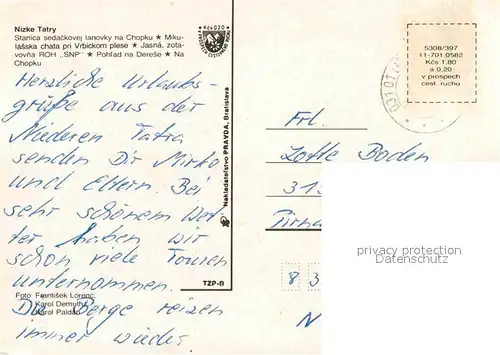 Nízke Tatry
Stanica sedačkovej lanovky na Chopku ★ Miku-
lášska chata pri Vrbickom plese ★ Jasná, zota-
vovňa ROH „SNP" ★ Pohľad na Dereše ★ Na
Chopku
Kčs 0,20
Herzliche Urlaubs-
grüße aus der
Niederen Tatra
senden Dir Mirko
und Eltern. Bei
sehr schönem Wet-
ter haben wir
schon viele Touren
unternommen.
Die Berge reizen
immer wieder
Foto František Lorenc,
Karol Demuth,
Karol Paldan
Nakladateľstvo PRAVDA, Bratislava
TZP-B
5308/397
11-701 0582
Kčs 1,80
a 0,20
v prospech
cest. ruchu
Frl.
Lotte Boden
313
Pirna
8 3
N
privacy protection
ansichtskarten-center.de